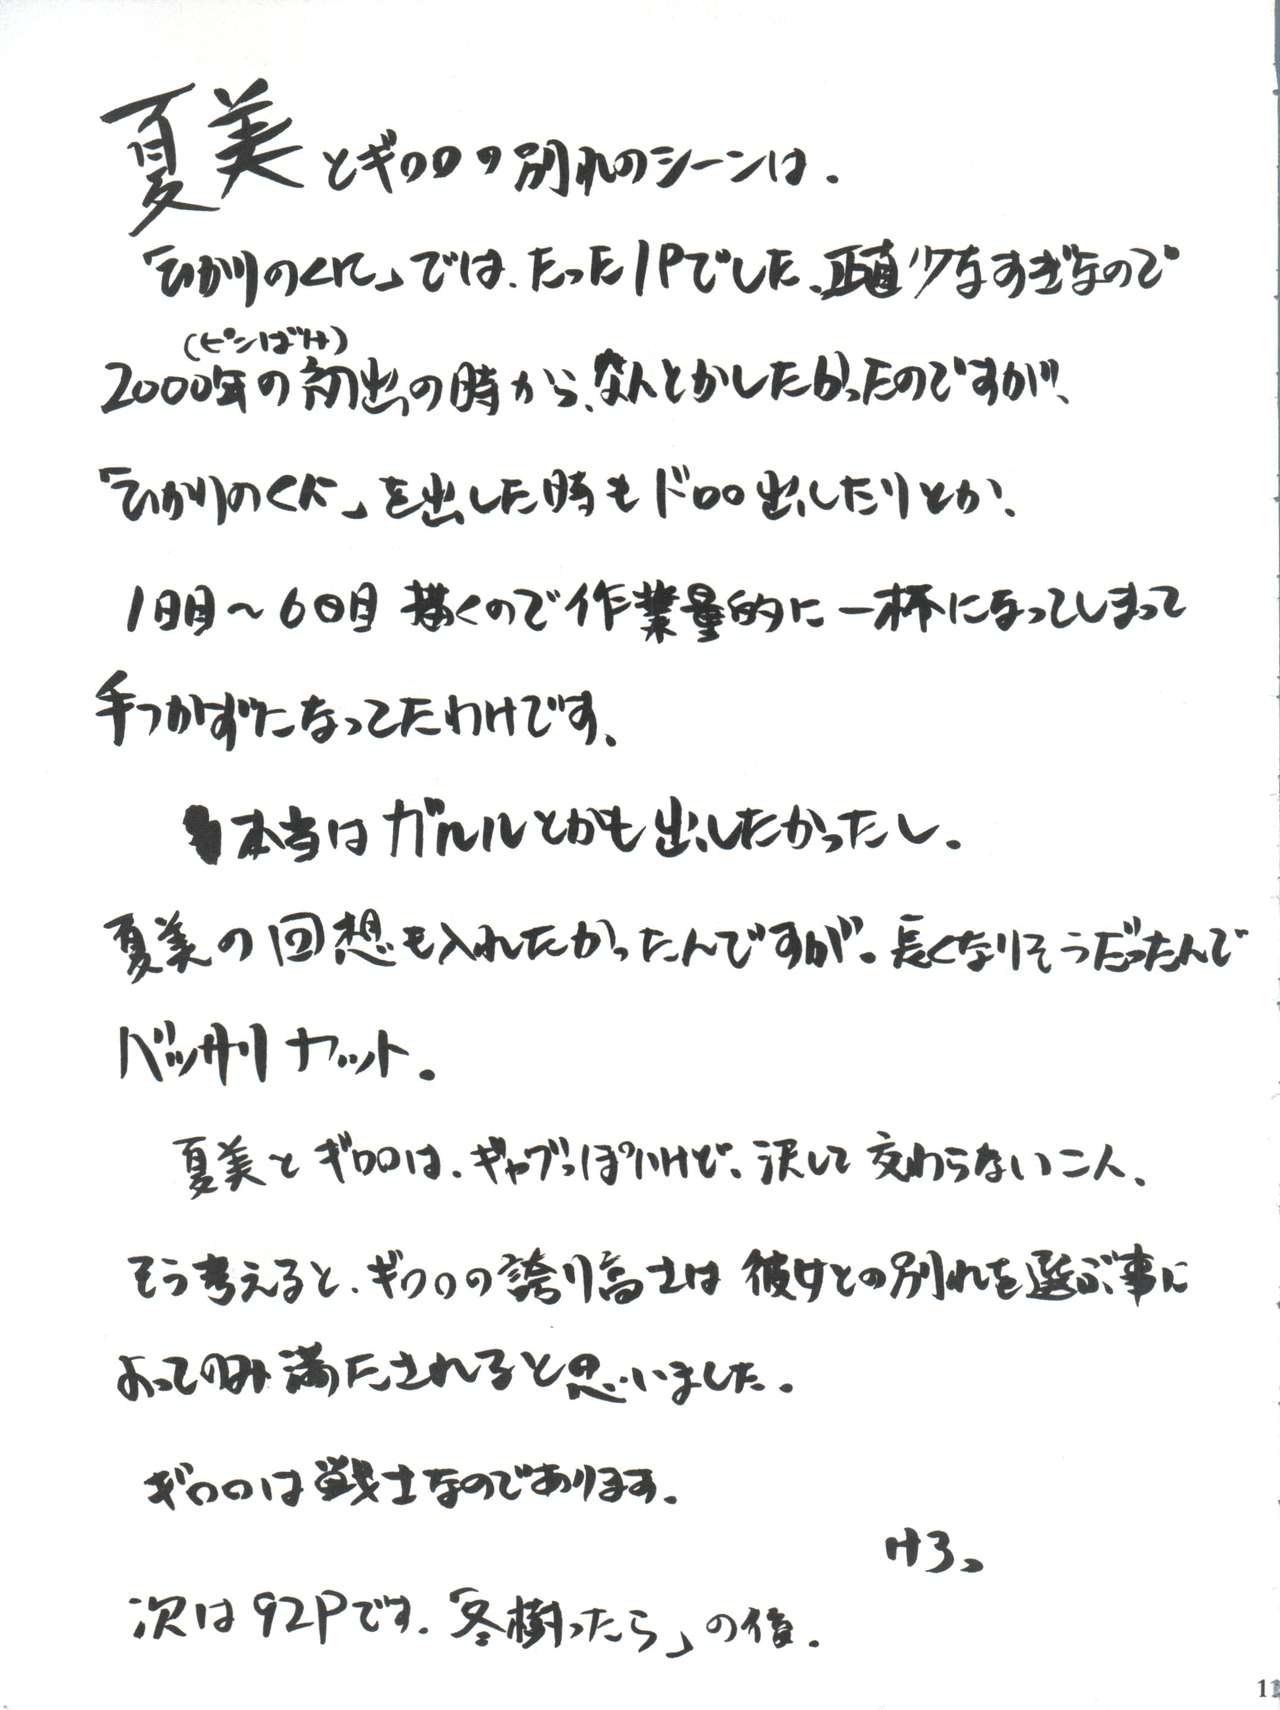 夏美とギロロの別れのシーンは.
「ひかりのくに」では、たった1Pでした、正直少なすぎなので
(ピンばけ)
2000年の初出の時から、なんとかしたかったのですが、
「ひかりのくに」を出した時もドロロ出したりとか、
1日目〜6日目 描くので作業量的に一杯になってしまって
手つかずになってたわけです、
本当はガルルとかも出したかったし.
夏美の回想も入れたかったんですが. 長くなりそうだったんで
バッサリカット.
夏美とギロロは、ギャグっぽいけど、決して交わらない二人、
そう考えると、ギロロの誇り高士は彼女との別れを選ぶ事に
よってのみ満たされると思いました.
ギロロは戦士なのであります.
けろっ
次は92Pです.「冬樹ったら」の後.
11